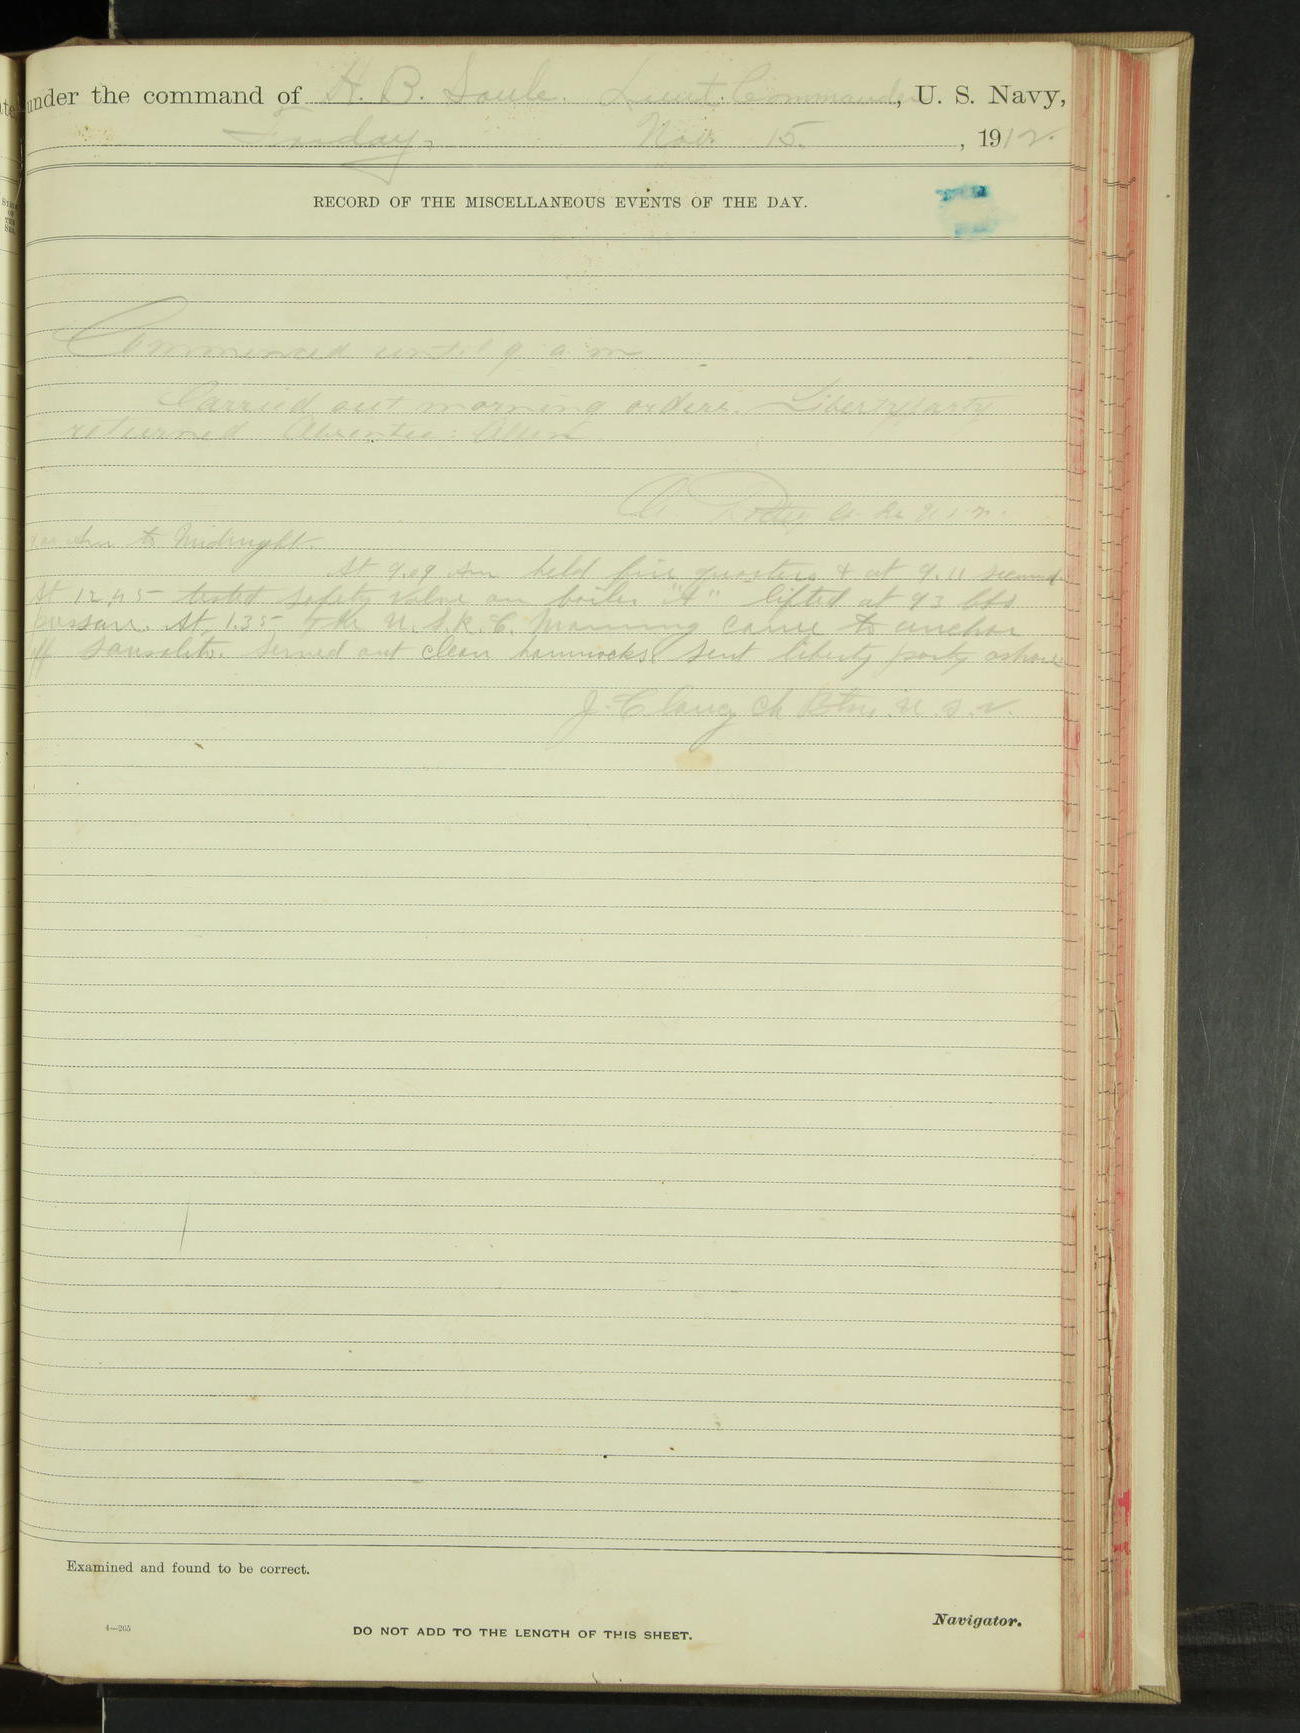 under the command of H. B. Soule Lieut. Commander, U. S. Navy,
Friday, Nov. 15, 1912.
RECORD OF THE MISCELLANEOUS EVENTS OF THE DAY.
Commenced until 9 a m
Carried out morning orders Liberty party
returned Absentee: Allen
U.S.N.
9 am to Midnight.
At 9.09 am held fire quarters & at 9.11 secured
At 12.45 tested safety valve on boiler "A" lifted at 93 lbs
pressure. At 1.35 the U.S.R.C. Manning came to anchor
off Sausalito. Served out clean hammocks. Sent liberty party ashore
J. Clancy Ch Btsn. U.S.N.
Examined and found to be correct.
Navigator.
4—265
DO NOT ADD TO THE LENGTH OF THIS SHEET.